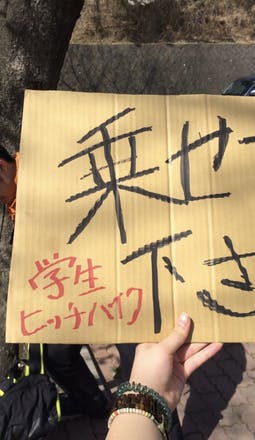 乗せ
下さ
学生
ヒッチハイク